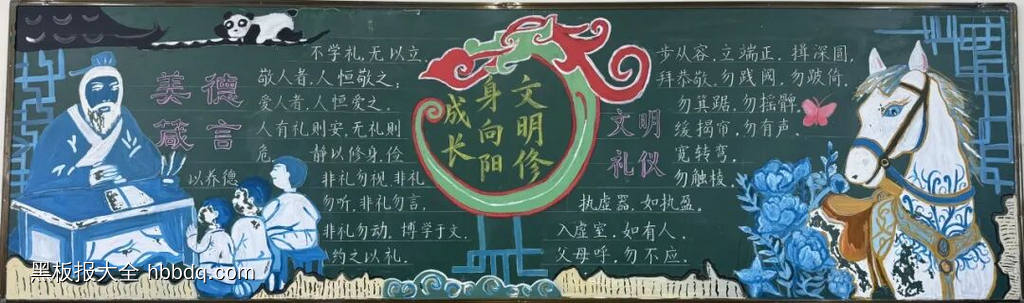 美德
箴言
不学礼,无以立
敬人者,人恒敬之;
爱人者,人恒爱之。
人有礼则安,无礼则
危。 静以修身,俭
以养德 非礼勿视,非礼
勿听,非礼勿言,
非礼勿动, 博学于文,
约之以礼。
文明修
身向阳
成长
文明
礼仪
步从容,立端正,揖深圆,
拜恭敬,勿践阈,勿跛倚,
勿箕踞,勿摇髀,
缓揭帘,勿有声,
宽转弯,
勿触棱,
执虚器,如执盈。
入虚室,如有人,
父母呼,勿不应。
黑板报大全 hbbdq.com